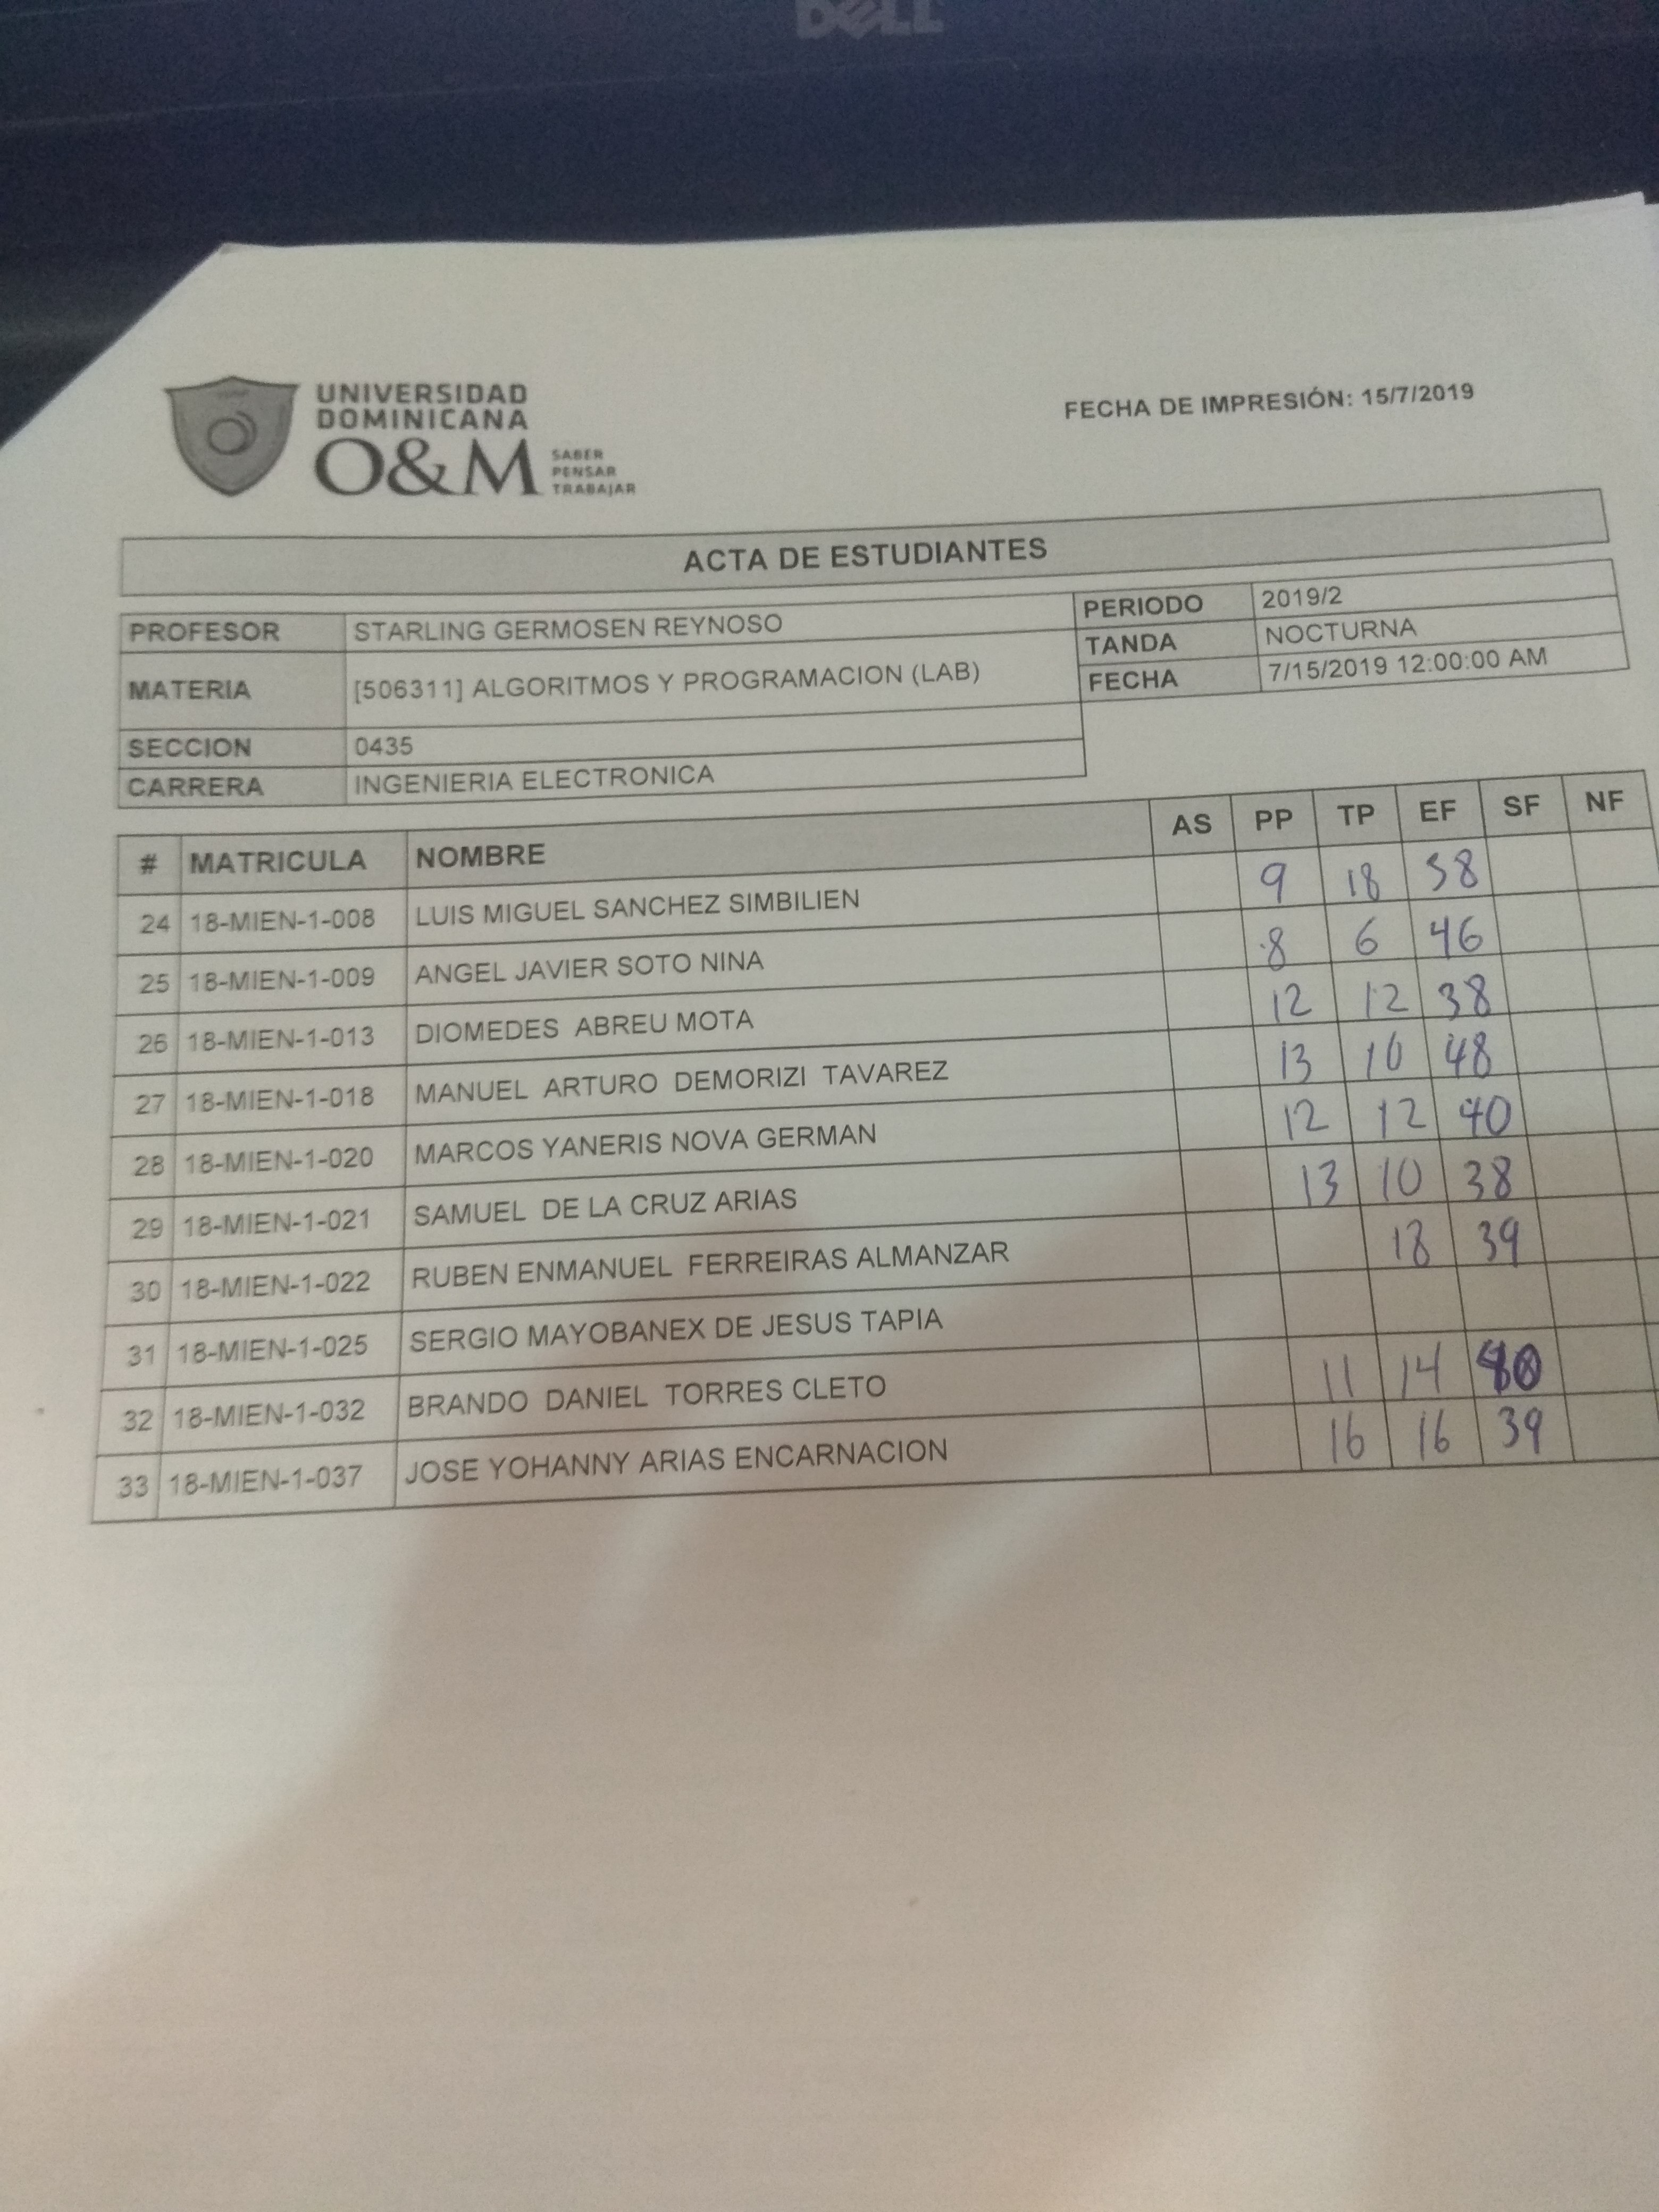 DELL
UNIVERSIDAD
DOMINICANA
O&M
SABER
PENSAR
TRABAJAR
FECHA DE IMPRESIÓN: 15/7/2019
ACTA DE ESTUDIANTES
PROFESOR STARLING GERMOSEN REYNOSO
MATERIA [506311] ALGORITMOS Y PROGRAMACION (LAB)
SECCION 0435
CARRERA INGENIERIA ELECTRONICA
PERIODO 2019/2
TANDA NOCTURNA
FECHA 7/15/2019 12:00:00 AM
# MATRICULA NOMBRE AS PP TP EF SF NF
24 18-MIEN-1-008 LUIS MIGUEL SANCHEZ SIMBILIEN 9 18
25 18-MIEN-1-009 ANGEL JAVIER SOTO NINA 8 6 46
26 18-MIEN-1-013 DIOMEDES ABREU MOTA 12 12 38
27 18-MIEN-1-018 MANUEL ARTURO DEMORIZI TAVAREZ 13 10 48
28 18-MIEN-1-020 MARCOS YANERIS NOVA GERMAN 12 12 40
29 18-MIEN-1-021 SAMUEL DE LA CRUZ ARIAS 13 10 38
30 18-MIEN-1-022 RUBEN ENMANUEL FERREIRAS ALMANZAR 18 39
31 18-MIEN-1-025 SERGIO MAYOBANEX DE JESUS TAPIA
32 18-MIEN-1-032 BRANDO DANIEL TORRES CLETO 11 14
33 18-MIEN-1-037 JOSE YOHANNY ARIAS ENCARNACION 16 16 39